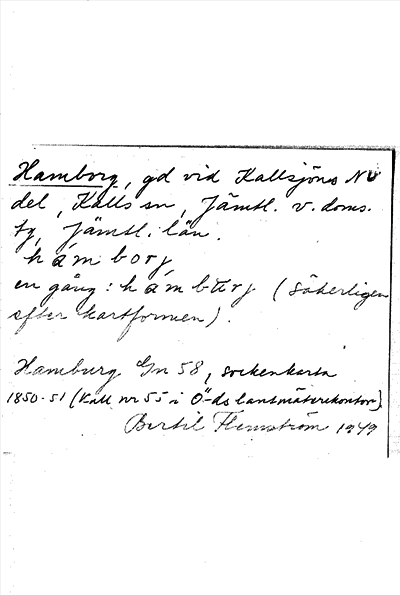 Hamborg, gd vid Kallsjöns NV
del, Kalls sn, Jämtl. v. doms.
fg, Jämtl. län.
hámborj
en gång: hámburj (säkerligen
efter kartformen).
Hamburg Gm 58, sockenkarta
1850-51 (Kall nr 55 i Ö-ds lantmäterikontor)
Bertil Flemström 1949